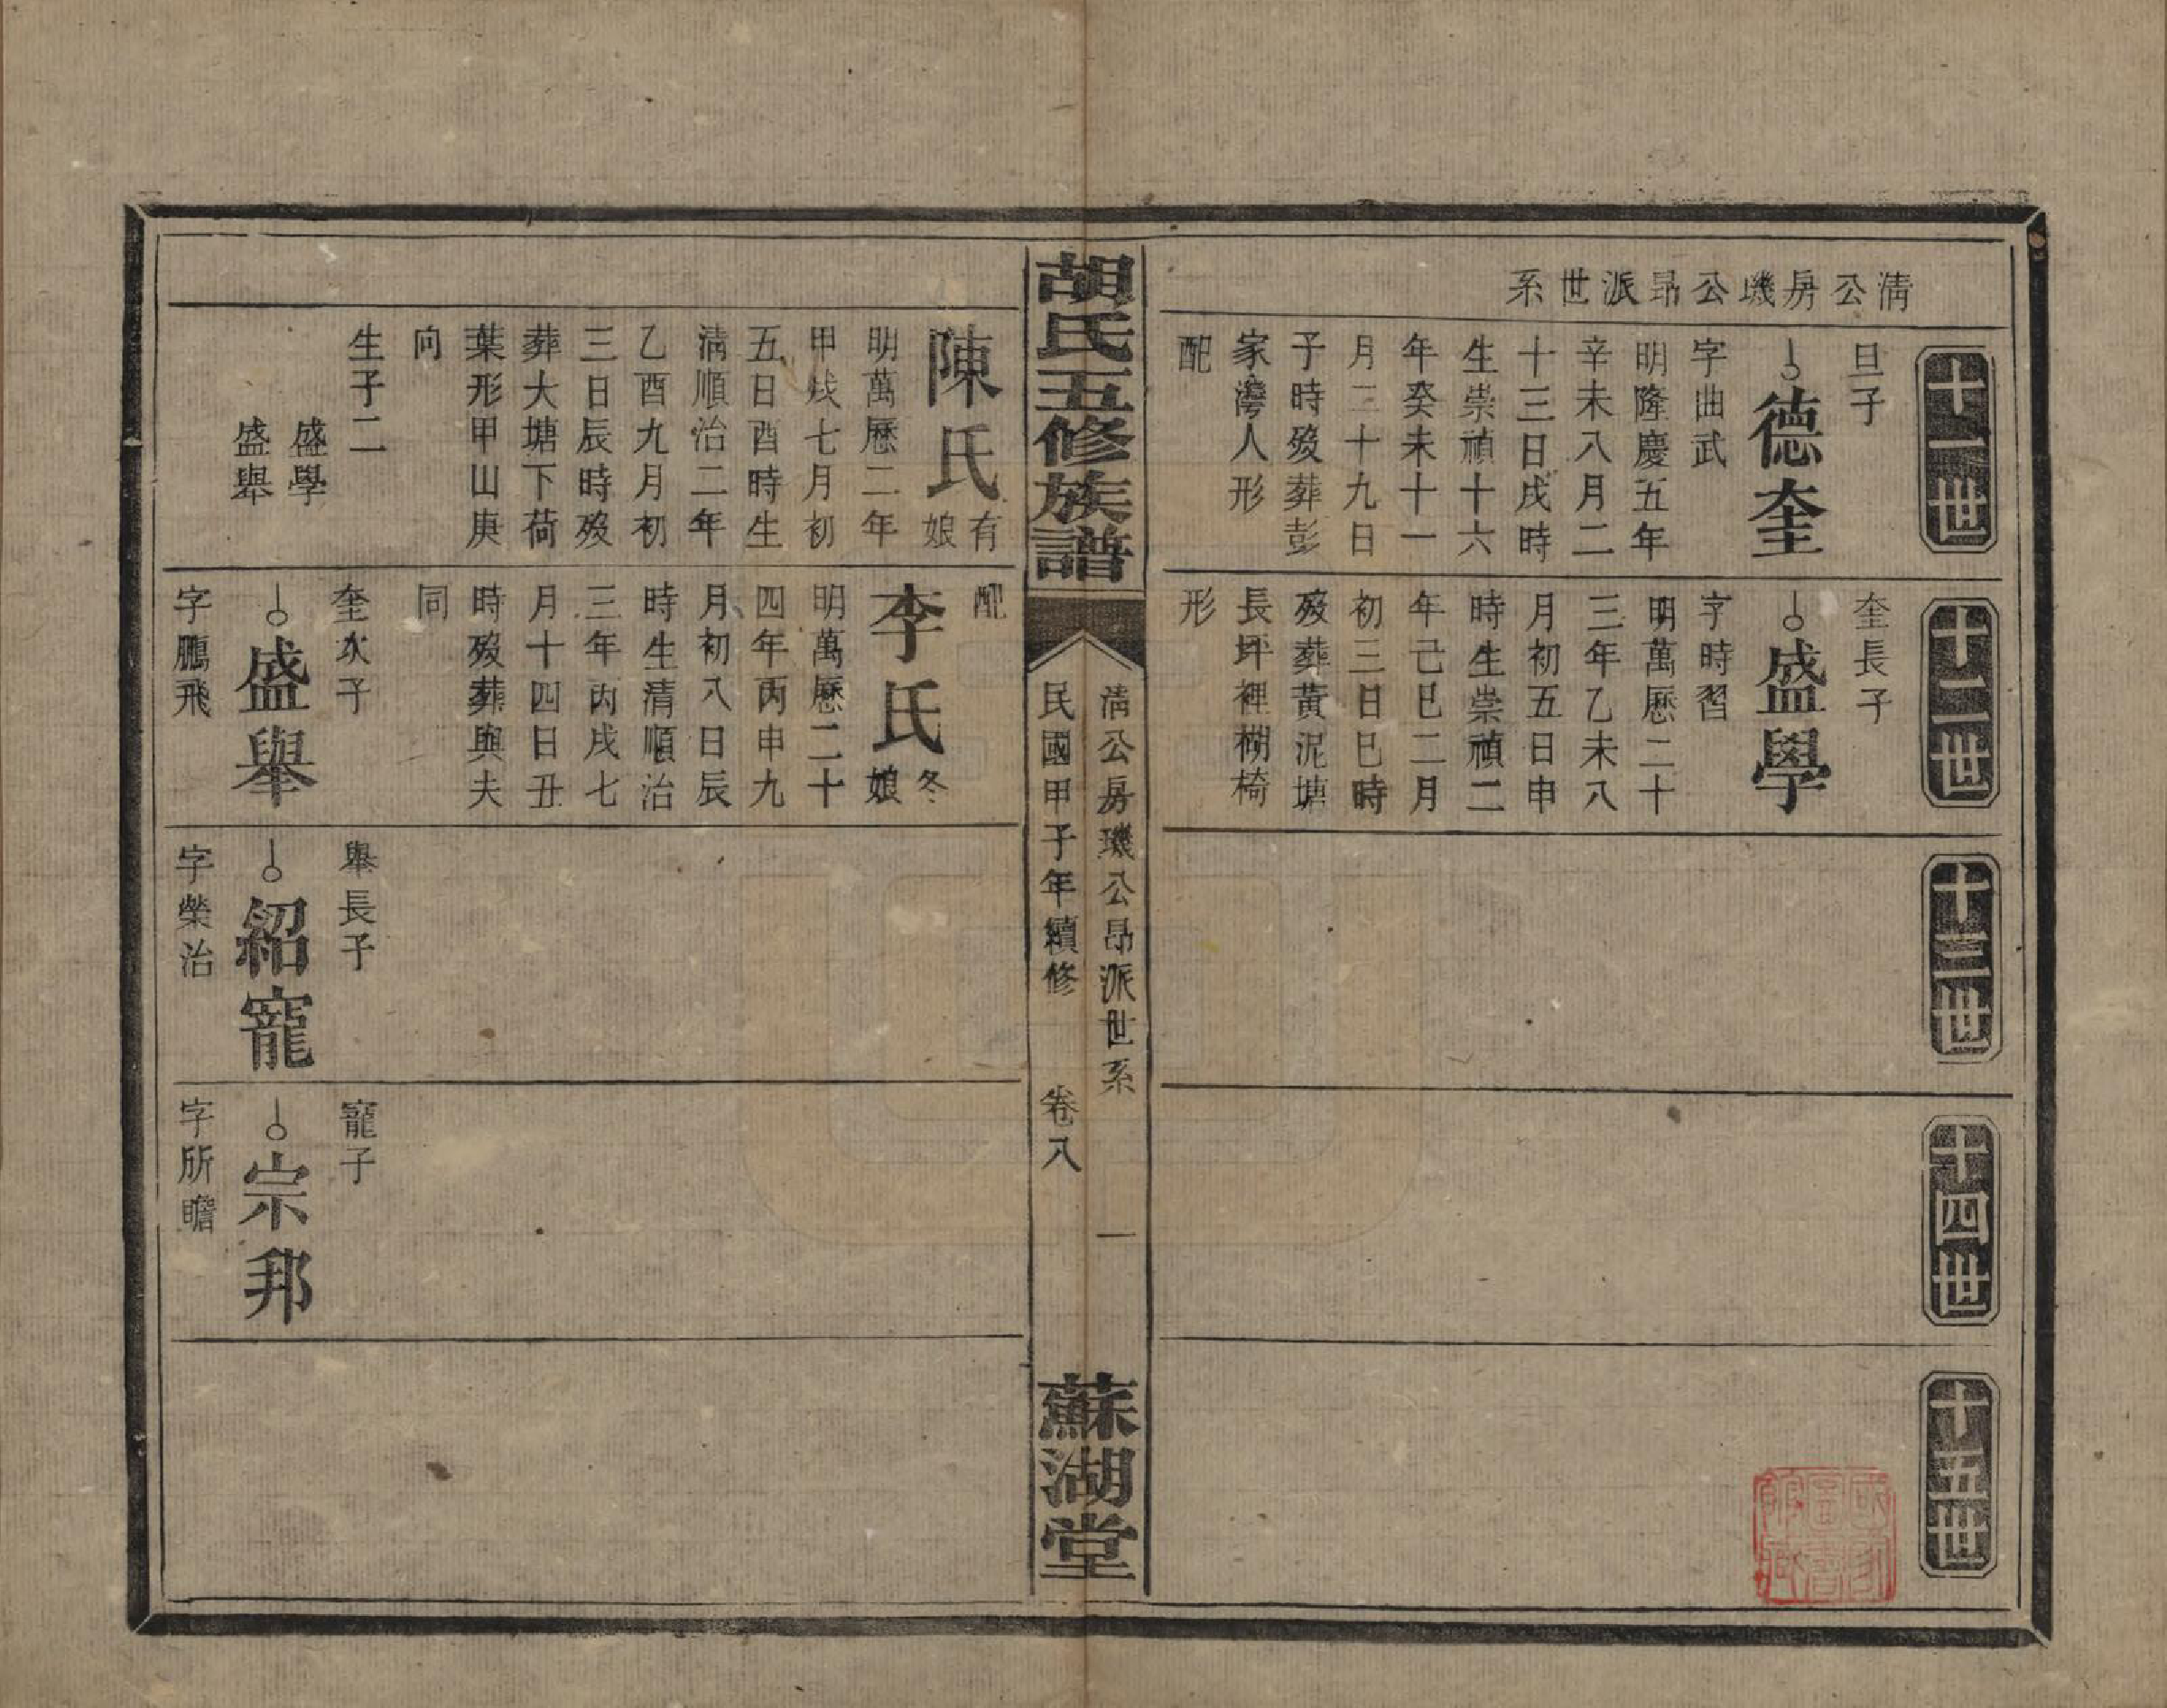 清公房璣公昂派世系
十一世
旦子
德奎
字曲武
明隆慶五年
辛未八月二
十三日戌時
生崇禎十六
年癸未十一
月二十九日
子時歿葬彭
家灣人形
配
十二世
奎長子
盛學
字時習
明萬曆二十
三年乙未八
月初五日申
時生崇禎二
年己巳二月
初三日巳時
歿葬黃泥塘
長坪裡楜椅
形
十三世
十四世
十五世
胡氏五修族譜
清公房璣公昂派世系
一
民國甲子年續修
卷八
蘇湖堂
陳氏有娘
明萬曆二年
甲戌七月初
五日酉時生
清順治二年
乙酉九月初
三日辰時歿
葬大塘下荷
葉形甲山庚
向
生子二
盛學
盛舉
配
李氏冬娘
明萬曆二十
四年丙申九
月初八日辰
時生清順治
三年丙戌七
月十四日丑
時歿葬與夫
同
奎次子
盛舉
字鵬飛
舉長子
紹寵
字榮治
寵子
宗邦
字所瞻